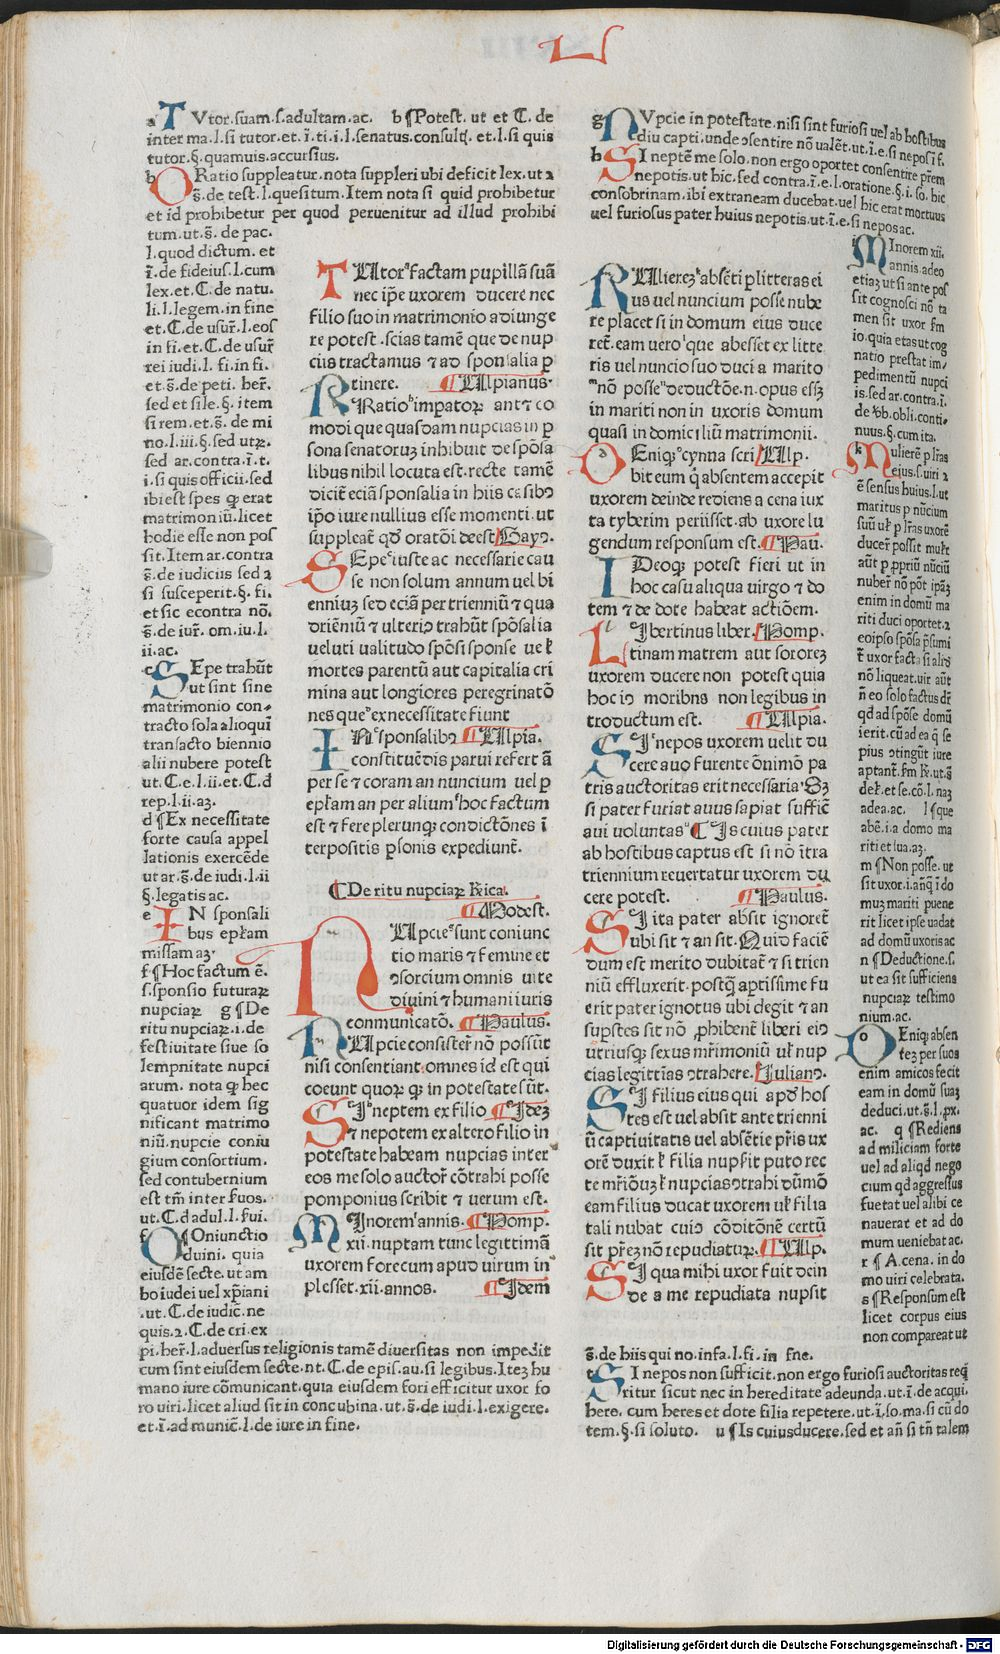 L
a TVtor.suam.s.adultam.ac. b ¶Potest. ut et C. de
inter ma.l.si tutor.et.ī.ti.i.l.senatus.consultꝫ.et.l.si quis
tutor.§.quamuis.accursius.
b ORatio suppleatur.nota suppleri ubi deficit lex.ut 2
s̄.de test.l.quesitum.Item nota si quid prohibetur
et id prohibetur per quod peruenitur ad illud prohibi
tum.ut.s̄.de pac.
l.quod dictum.et
ī.de fideius.l.cum
lex.et.C.de natu.
li.l.legem.in fine
et.C.de usur̄.l.eos
in fi.et.C.de usur̄
rei iudi.l. fi.in fi.
et.s̄.de peti. her̄.
sed et si le.§. item
si rem.et.s̄. de mi
no.l.iii.§.sed utꝝ.
sed ar.contra.ī.t.
i.si quis officii.sed
ibi est spes ꝙ erat
matrimoniū.licet
hodie esse non pos
sit.Item ar.contra
s̄.de iudiciis sed 2
si susceperit.§. fi.
et sic econtra nō.
s̄.de iur̄. om.iu.l.
ii.ac.
c SEpe trahūt
ut sint sine
matrimonio con-
tracto sola alioqui
transacto biennio
alii nubere potest
ut.C.e.l.ii.et.C.d
rep.l.ii.aꝫ.
d ¶Ex necessitate
forte causa appel
lationis exercēde
ut ar.s̄.de iudi.l.ii
§.legatis ac.
e IN sponsali
bus epl̄am
missam aꝫ.
f ¶Hoc factum ē.
s.sponsio futuraꝝ
nupciaꝝ g ¶De
ritu nupciaꝝ.i.de
festiuitate siue so
lempnitate nupci
arum. nota ꝙ hec
quatuor idem sig
nificant matrimo
niū.nupcie coniu
gium consortium.
sed contubernium
est tm̄ inter s̄uos.
ut.C.d adul.l.s̄ui.
f COniunctio
diuini. quia
eiusdē secte.ut am
bo iudei uel xp̄iani
.ut.C.de iudic̄.ne
quis.2.C.de cri.ex
pi.her̄.l.aduersus religionis tamē diuersitas non impedit
cum sint eiusdem secte.nt.C.de epis.au.si legibus.Iteꝫ hu
mano iure cōmunicant.quia eiusdem fori efficitur uxor fo
ro uiri.licet aliud sit in concubina.ut.s̄.de iudi.l.exigere.
et.ī.ad munic̄.l.de iure in fine.
TUtor factam pupillā suā
nec ip̄e uxorem ducere nec
filio suo in matrimonio adiunge
re potest.scias tamē que de nup
ciis tractamus ⁊ ad sponsalia ꝑ
tinere. ¶Ulpianus.
ORatio imꝑatoꝝ anto co
modi que quasdam nupcias in ꝑ
sona senatoruꝫ inhibuit de spōsa
libus nihil locuta est.recte tamē
dicit̄ eciā sponsalia in hiis casibꝫ
ip̄o iure nullius esse momenti.ut
suppleat̄ qd̄ oratōi deest Gayꝰ.
SEpe iuste ac necessarie cau
se non solum annum uel bi
enniuꝫ sed eciā per trienniū ⁊ qua
drieniū ⁊ ulteriꝰ trahūt spōsalia
ueluti ualitudo spōsi sponse uel
mortes parentū aut capitalia cri
mina aut longiores peregrinatō
nes que ex necessitate fiunt
IN sponsalibꝫ ¶Ulpia.
constituēdis parui refert ā
per se ⁊ coram an nuncium uel ꝑ
epl̄am an per alium hoc factum
est ⁊ fere plerunqꝫ condictōnes ī
terpositis ꝑsonis expediunt̄.
¶De ritu nupciaꝝ Rica.
¶Modest.
NUpcie sunt coniunc
tio maris ⁊ femine et
ꝯsorcium omnis uite
diuini ⁊ humani iuris
conmunicatō. ¶Paulus.
NUpcie consister̄ nō possūt
nisi consentiant omnes id est qui
coeunt quorꝫ ꝙ in potestate sūt.
SI neptem ex filio ¶Ideꝫ
⁊ nepotem ex altero filio in
potestate habeam nupcias inter
eos me solo auctor̄ cōtrahi posse
pomponius scribit ⁊ uerum est.
MInorem annis. ¶Pomp.
xii.nuptam tunc legittimā
uxorem forecum apud uirum in
plesset.xii.annos. ¶Idem
g NVpcie in potestate.nisi sint furiosi uel ab hostibus
diu capti.unde ꝯsentire nō ualēt.ut.ī.e.si nepos ī f.
h SI neptē me solo.non ergo oportet consentire pr̄em
nepotis.ut hic.sed contra.ī.e.l.oratione.§.i. so. hic
consobrinam.ibi extraneam ducebat.uel hic erat mortuus
uel furiosus pater huius nepotis.ut.ī.e.si nepos ac.
MUliereꝫ absēti ꝑ litteras ei
us uel nuncium posse nube
re placet si in domum eius duce
ret̄.eam uero que abesset ex litte
ris uel nuncio suo duci a marito
nō posse deductōe.n.opus esꝫ
in mariti non in uxoris domum
quasi in domiciliū matrimonii.
DEniqꝫ cynna scri Ulp.
bit eum q̄ absentem accepit
uxorem deinde rediens a cena iux
ta tyberim periisset.ab uxore lu
gendum responsum est.¶Pau.
IDeoqꝫ potest fieri ut in
hoc casu aliqua uirgo ⁊ do
tem ⁊ de dote habeat actiōem.
LIbertinus liber. Pomp.
tinam matrem aut sororeꝫ
uxorem ducere non potest quia
hoc iꝰ moribns non legibus in
troductum est. ¶Ulpia.
SI nepos uxorem uelit du
cere auo furente ōnimo pa
tris auctoritas erit necessaria.Sꝫ
si pater furiat auus sapiat suffic̄
aui uoluntas ¶Is cuius pater
ab hostibus captus est si nō ītra
triennium reuertatur uxorem du
cere potest. ¶Paulus.
SI ita pater absit ignoret̄
ubi sit ⁊ an sit. Quid faciē
dum est merito dubitat̄ ⁊ si trien
niū effluxerit.postqꝫ aꝑtissime fu
erit pater ignotus ubi degit ⁊ an
suꝑstes sit nō ꝓhibent̄ liberi eiꝰ
utriusqꝫ sexus mr̄imoniū uel nup
cias legittias ꝯtrahere. Iulianꝰ.
SI filius eius qui apd̄ hos
tes est uel absit ante trienni
ū captiuitatis uel absētie pr̄is ux
orē duxit uel filia nupsit puto rec
te mr̄iōuꝫ uel nupcias ꝯtrahi dūmō
eam filius ducat uxorem uel filia
tali nubat cuiꝰ cōditōnē certū
sit pr̄eꝫ nō repudiaturꝫ.¶Ulp.
SI qua mihi uxor fuit dein
de a me repudiata nupsit
i MInorem xii.
annis.adeo
etiaꝫ ut si ante pos
sit cognosci nō ta
men sit uxor s̄m
io.quia etas ut cog
natio prestat im-
pedimentū nupci
is.sed ar.contra.ī.
de ūb.obli.conti-
nuus.§.cum ita.
k MUlierē ꝑ lr̄as
eius.s.uiri 2
ē sensus huius.l.ut
maritus ꝑ nūcium
suū uel ꝑ lr̄as uxorē
ducer̄ possit mulier
aūt ꝑ ꝓpriū nūciū
nuber̄ nō pōt ipaꝫ
enim in domū ma
riti duci oportet.2
eo ipso spōsa p̄sumi
t̄ uxor facta si aliꝰ
nō liqueat.uir aūt
n̄ eo solo factus dr̄
qd̄ ad spōse domū
ierit.cū ad ea q̄ se
pius ꝯtingūt iure
aptant̄.
adea.ac. l ¶que
abē.i.a domo ma
riti et lua.aꝫ.
m ¶Non posse.ut
sit uxor.i.anqꝫ ī do
muꝫ mariti puene
rit licet ipse uadat
ad domū uxoris ac
n ¶Deductione.s.
ut ea sit sufficiens
nupciaꝝ testimo
nium.ac.
o DEniqꝫ absen
teꝫ per suos
enim amicos fecit
eam in domū suaꝫ
deduci.ut.s̄.l.ꝓx.
ac. q ¶Rediens
ad miliciam forte
uel ad aliqd̄ nego
cium qd̄ aggressus
fuerat uel alibi ce
nauerat et ad do
mum ueniebat ac.
r ¶A cena.in do
mo uiri celebrata.
s ¶Responsum est
licet corpus eius
non compareat ut
s̄.de hiis qui no.infa.l.fi.in fne.
t SI nepos non sufficit.non ergo furiosi auctoritas req̄
ritur sicut nec in hereditate adeunda.ut.ī.de acqui.
here. cum heres et dote filia repetere.ut.ī.so.ma.si cū do
tem.§.si soluto. u ¶Is cuius ducere.sed et an̄ si tn̄ talem
Digitalisierung gefördert durch die Deutsche Forschungsgemeinschaft - DFG